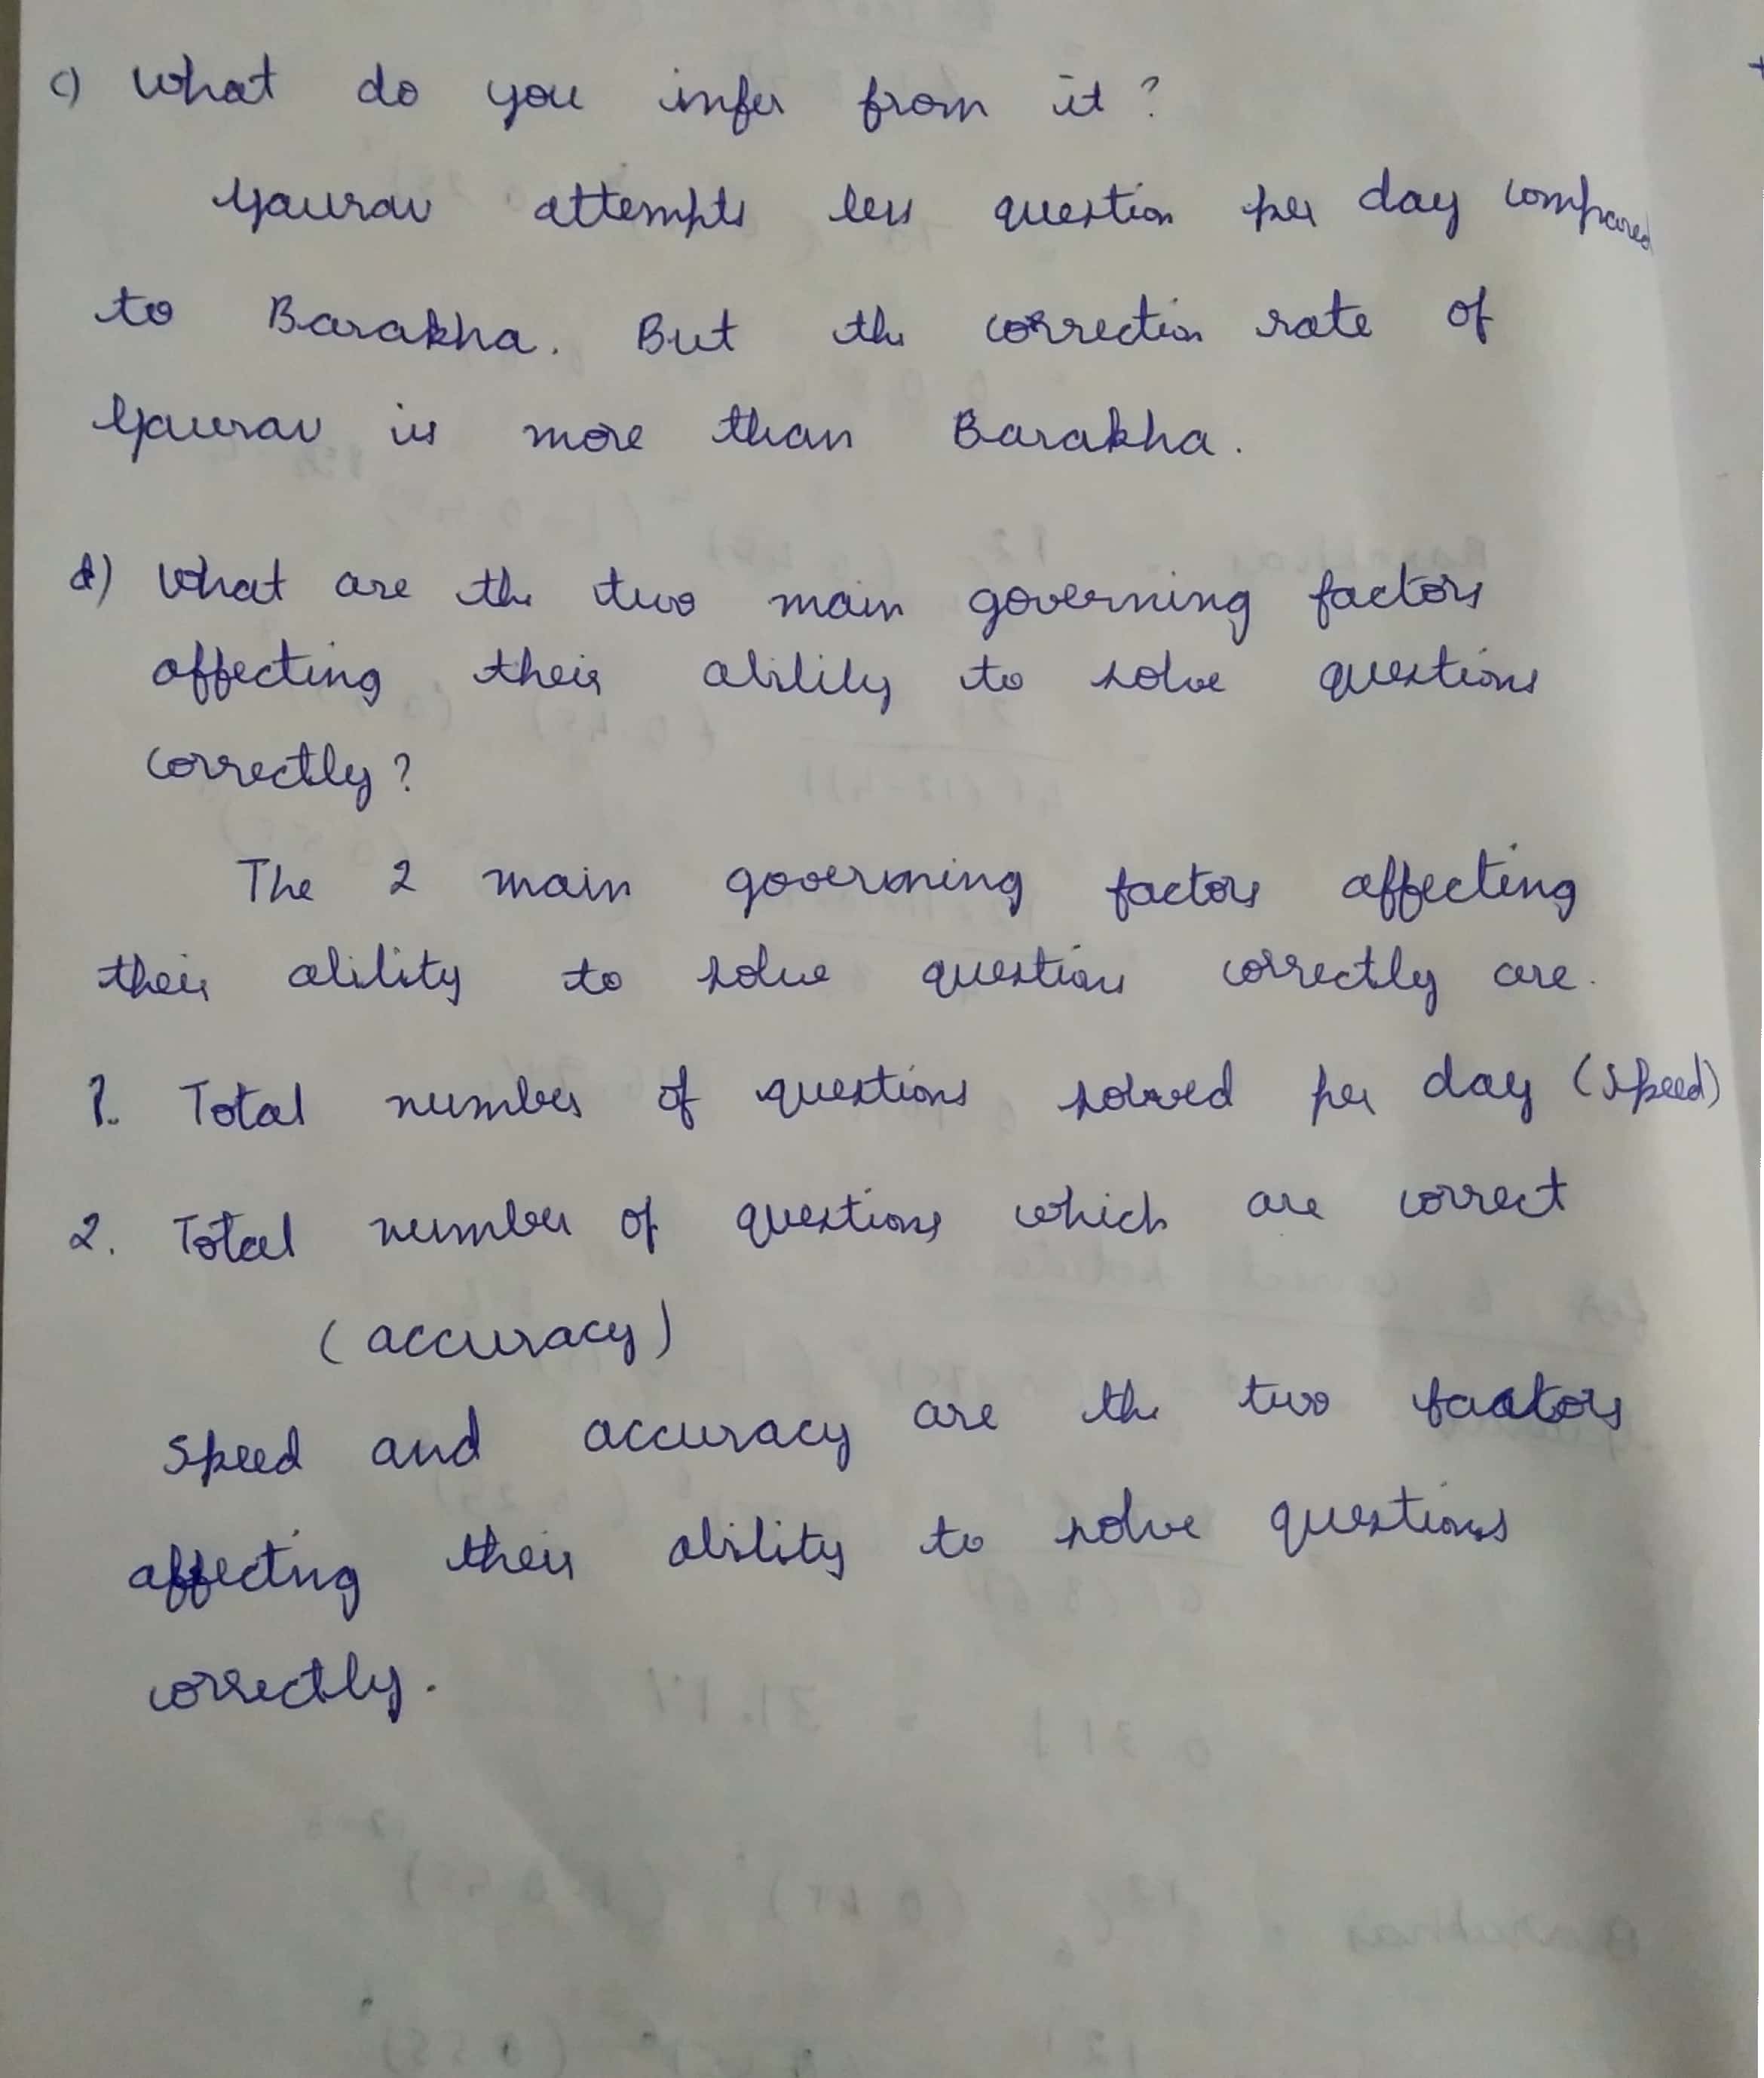 c) What do you infer from it ?
Gaurav attempts less question per day compared
to Barakha. But the correction rate of
Gaurav is more than Barakha.
d) What are the two main governing factors
affecting their ability to solve questions
correctly ?
The 2 main governing factors affecting
their ability to solve questions correctly are.
1. Total number of questions solved per day (speed)
2. Total number of questions which are correct
(accuracy)
Speed and accuracy are the two factors
affecting their ability to solve questions
correctly.